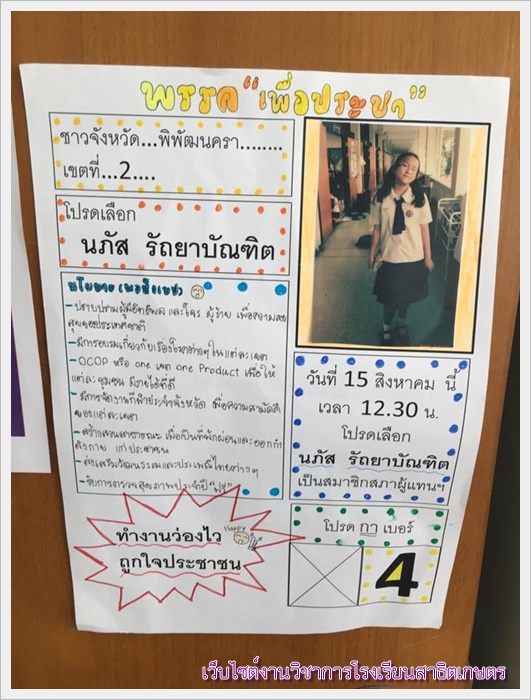 พรรค "เพื่อประชา"
ชาวจังหวัด...พิพัฒนครา........
เขตที่...2....
โปรดเลือก
นภัส รัถยาบัณฑิต
นโยบาย (พอสังเขป)
- ปราบปรามผู้มีอิทธิพล และโจร ผู้ร้าย เพื่อความสงบ
สุขของประเทศชาติ
- มีการอบรมเกี่ยวกับเรื่องโรคต่างๆ ในแต่ละเขต
- OCOP หรือ one เขต one Product เพื่อให้
แต่ละชุมชน มีรายได้ที่ดี
- มีการจัดงานกีฬาประจำจังหวัด เพื่อความสามัคคี
ของแต่ละเขต
- สร้างสวนสาธารณะ เพื่อเป็นที่พักผ่อนและออกกำ
ลังกาย แก่ประชาชน
- ส่งเสริมวัฒนธรรมและประเพณีไทยต่างๆ
- จัดการตรวจสุขภาพประจำปี "ฟรี"
วันที่ 15 สิงหาคม นี้
เวลา 12.30 น.
โปรดเลือก
นภัส รัถยาบัณฑิต
เป็นสมาชิกสภาผู้แทนฯ
ทำงานว่องไว
Happy
ถูกใจประชาชน
โปรด กา เบอร์
4
เว็บไซต์งานวิชาการโรงเรียนสาธิตเกษตร